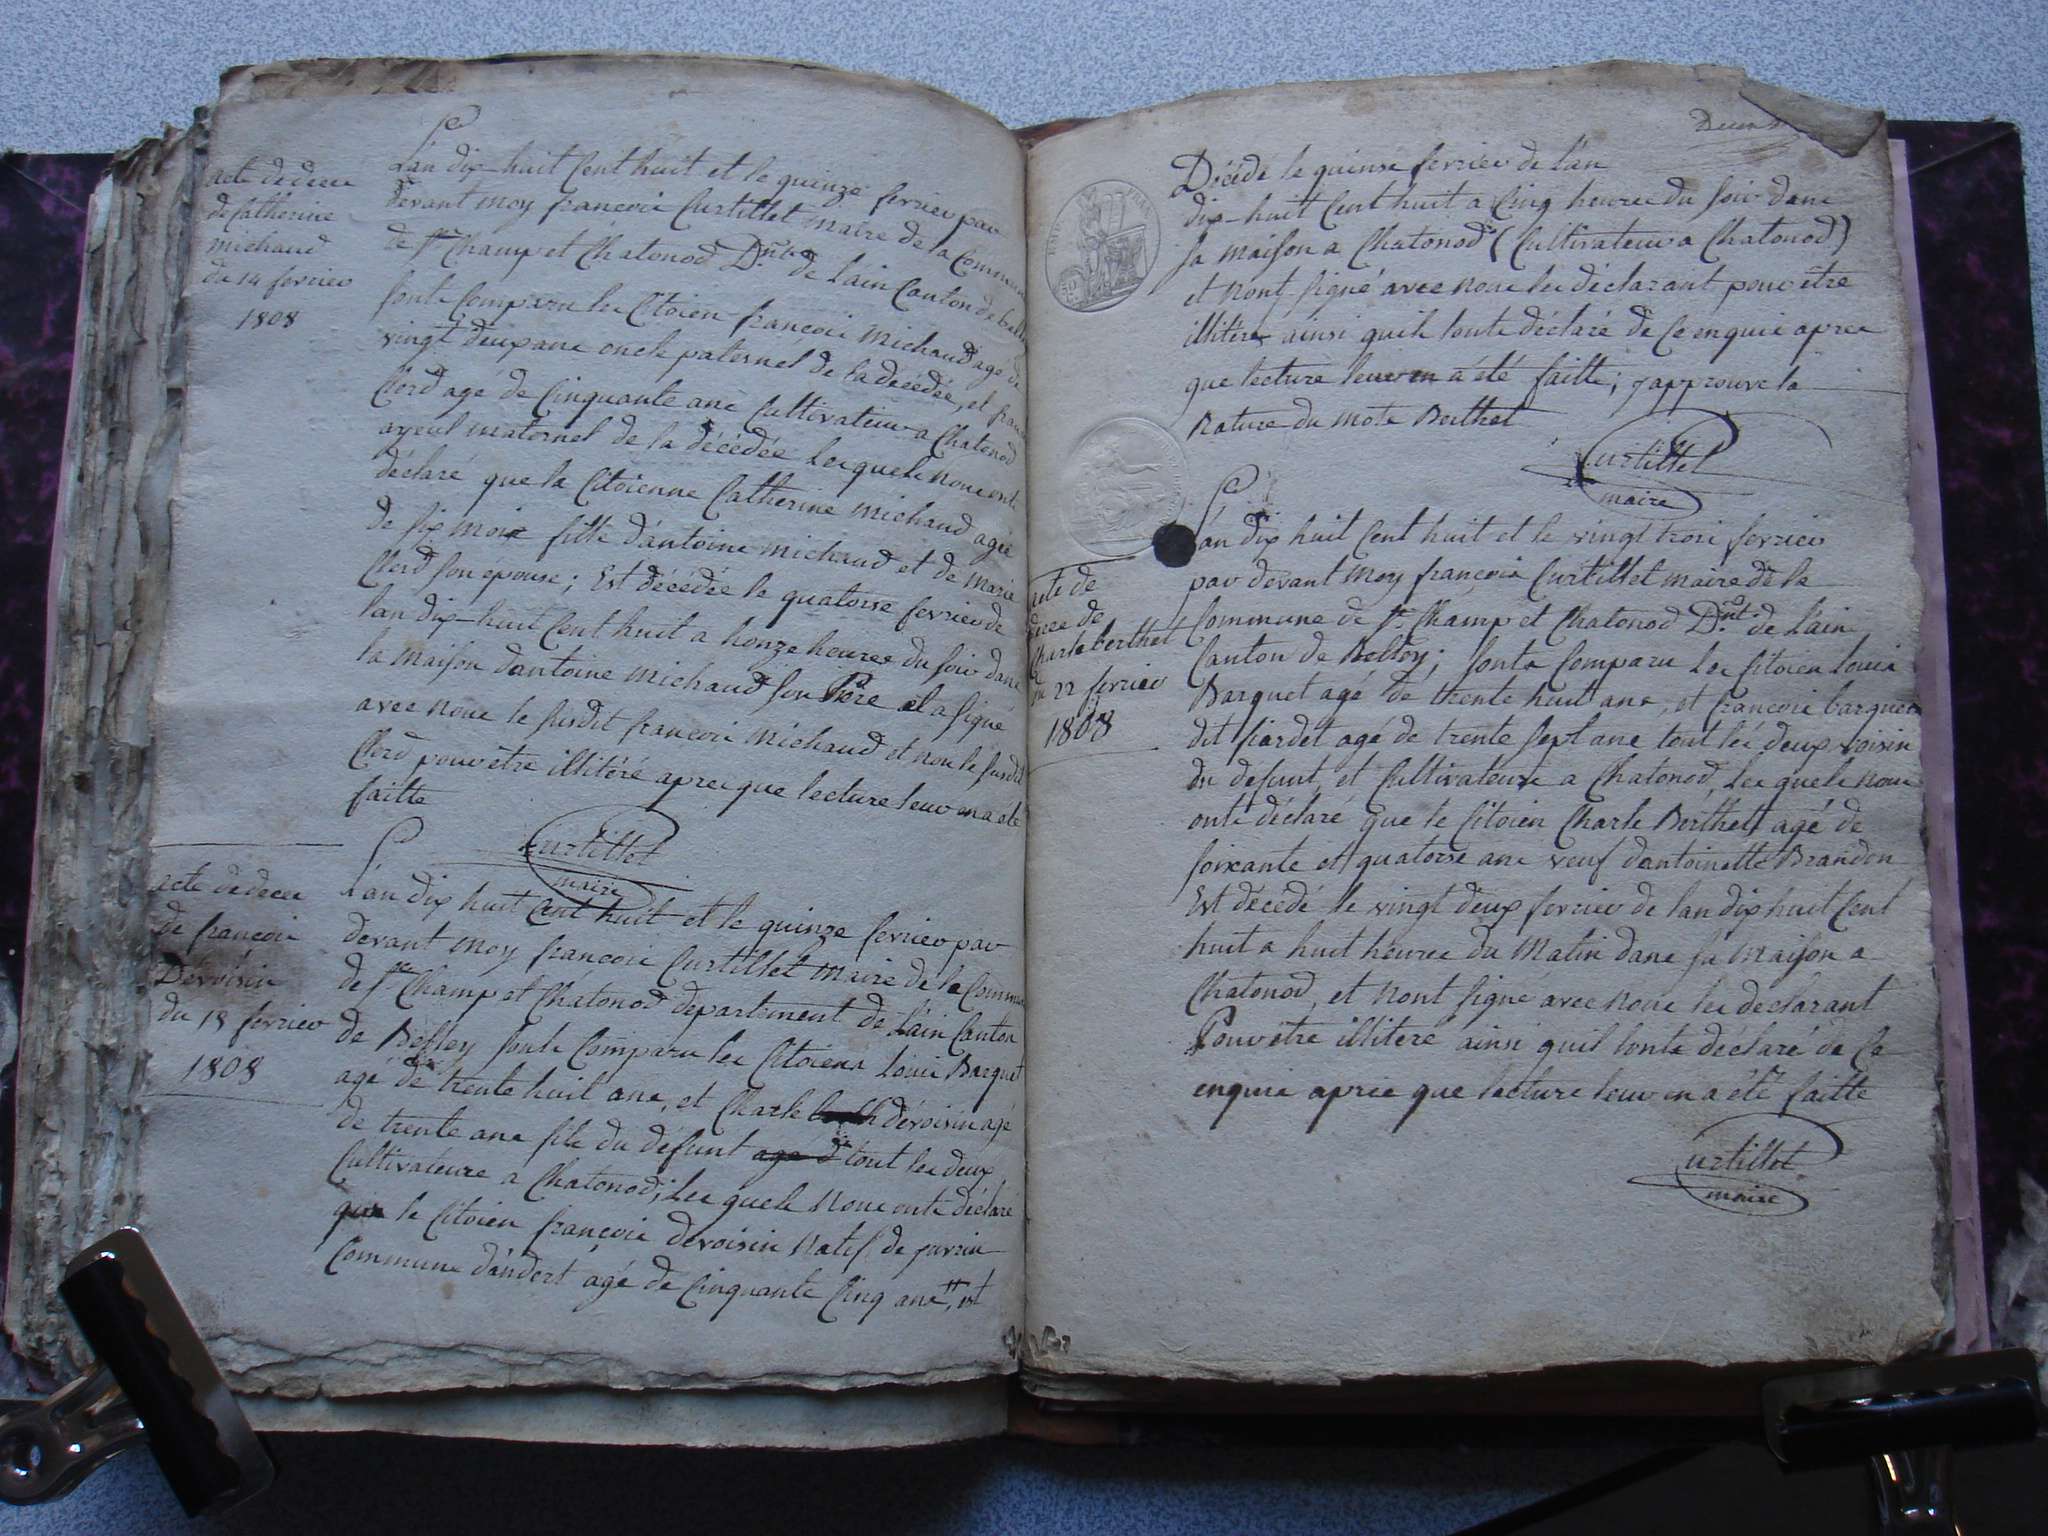 acte de deces
de Catherine
michaud
du 14 fevrier
1808
L'an dix-huit Cent huit et le quinze fevrier par
devant moy françois Curtillet maire de la Commune
de St Champ et Chatonod D.nt de l'ain Canton de belley
sonts Comparu les Citoien françois michaud agé de
vingt deux ans oncle paternel de la décédée, et
Clerd agé de Cinquante ans Cultivateur a Chatonod
ayeul maternel de la décédée les quels nous onts
déclaré que la Citoienne Catherine michaud agée
de six mois fille d'antoine michaud et de marie
Clerd son epouse; Est décédée le quatorse fevrier de
l'an dix-huit Cent huit a honze heures du soir dans
la maison d'antoine michaud son Père et a signé
avec nous le susdit françois michaud et non le susdit
Clerd pour être illitéré apres que lecture leur en a été
faitte
Curtillet
maire
acte de deces
de françois
Dévoisin
du 15 fevrier
1808
L'an dix huit Cent huit et le quinse fevrier par
devant moy françois Curtillet maire de la Commune
de St Champ et Chatonod departement de l'ain Canton
de Belley sonts Comparu les Citoiens Louis Barquet
agé de trente huit ans, et Charle dévoisin agé
de trente ans fils du défunt age d tout les deux
Cultivateurs a Chatonod; les quels nous onts déclaré
que le Citoien françois devoisin natif de
Commune d'andert agé de Cinquante Cinq ans, est
Décédé le quinse fevrier de l'an
dix-huit Cent huit a Cinq heures du soir dans
sa maison a Chatonod (Cultivateur a Chatonod)
et nont signé avec nous les déclarant pour être
illitéré ainsi quils l'onts déclaré de Ce enquis apres
que lecture leur en a été faitte; j'approuve la
Rature du mots Berthet
Curtillet
maire
acte de
déces de
Charle berthet
du 22 fevrier
1808
L'an dix huit Cent huit et le vingt trois fevrier
par devant moy françois Curtillet maire de la
Commune de St Champ et Chatonod D.nt de l'ain
Canton de Belley; sonts Comparu les Citoien Louis
Barquet agé de trente huit ans, et françois barquet
dit piardet agé de trente sept ans tout les deux voisin
du defunt, et Cultivateurs a Chatonod, les quels nous
onts déclaré que le Citoien Charle Berthet agé de
soixante et quatorse ans veuf d'antoinette Brandon
Est décédé le vingt deux fevrier de l'an dix huit Cent
huit a huit heures du matin dans sa maison a
Chatonod, et nont signe avec nous les declarant
Pour être illiteré ainsi quil l'onts déclaré de Ce
enquis apres que lecture leur en a été faitte
Curtillet
maire